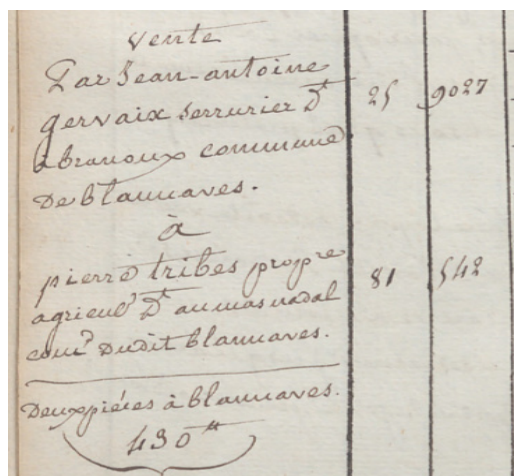 vente
Par Jean-antoine
gervaix serrurier Dt 25 9027
à branoux commune
De blannaves.
à
pierre tribes propre
agricult Dt au mas nadal 81 542
come Dudit blannaves.
Deux pièces à blannaves.
430 tt